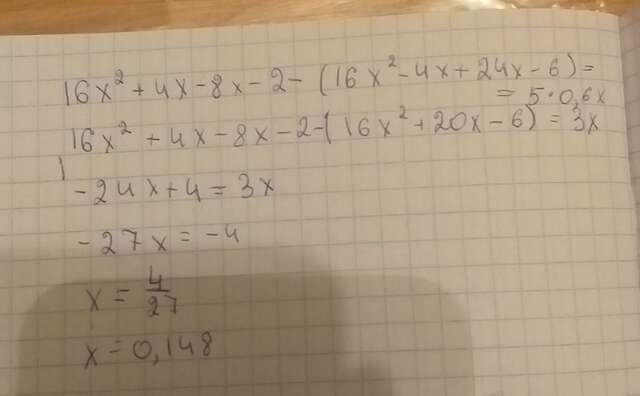 16x² + 4x - 8x - 2 - (16x² - 4x + 24x - 6) =
= 5 · 0,6x
16x² + 4x - 8x - 2 - (16x² + 20x - 6) = 3x
- 24x + 4 = 3x
- 27x = -4
x = 4/27
x = 0,148